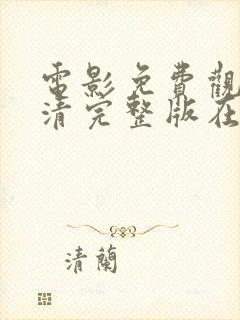 電影免費觀
清完整版在
清蘭